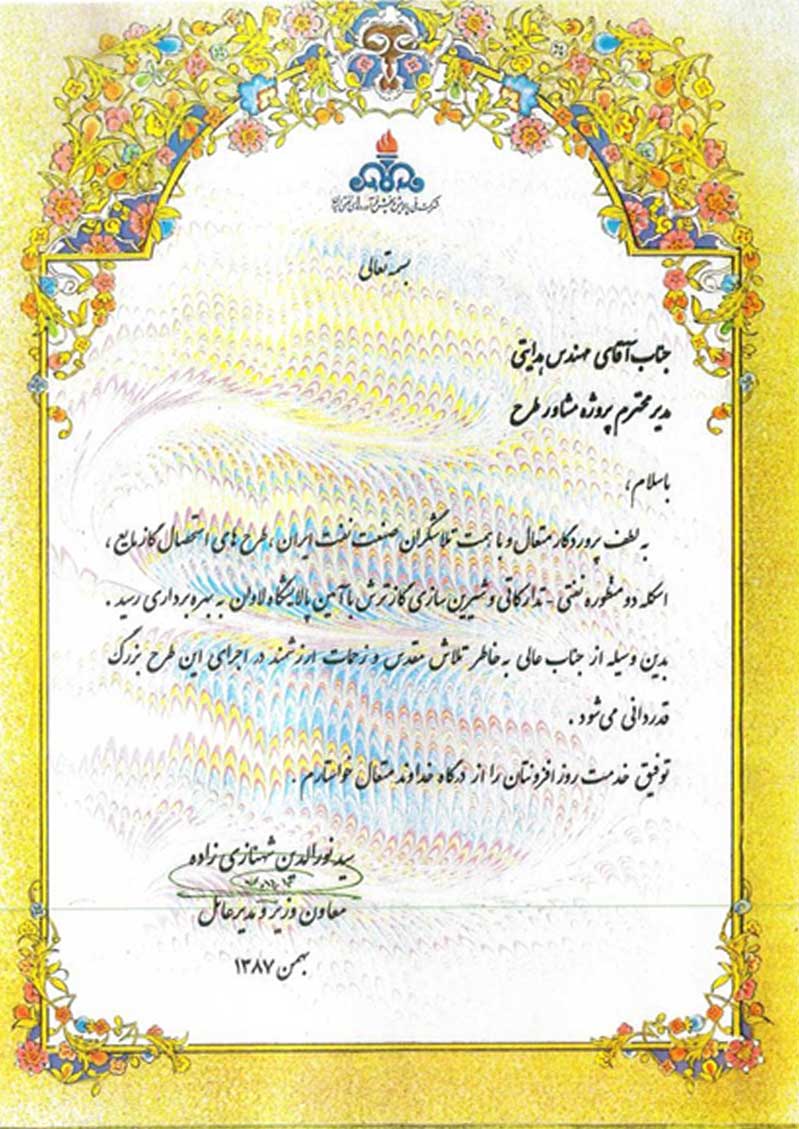 شرکت ملی پالایش و پخش فرآورده‌های نفتی ایران
بسمه تعالی
جناب آقای مهندس هدایتی
مدیر محترم پروژه مشاور طرح
باسلام،
به لطف پروردگار متعال و با همت تلاشگران صنعت نفت ایران، طرح های استحصال گاز مایع،
اسکله دو منظوره نفتی - تدارکاتی و شیرین سازی گاز ترش با آمین پالایشگاه لاوان به بهره برداری رسید.
بدین وسیله از جناب عالی به خاطر تلاش مقدس و زحمات ارزشمند در اجرای این طرح بزرگ
قدردانی می شود.
توفیق خدمت روز افزونتان را از درگاه خداوند متعال خواستارم.
سید نورالدین شهنازی زاده
معاون وزیر و مدیرعامل
بهمن ۱۳۸۷